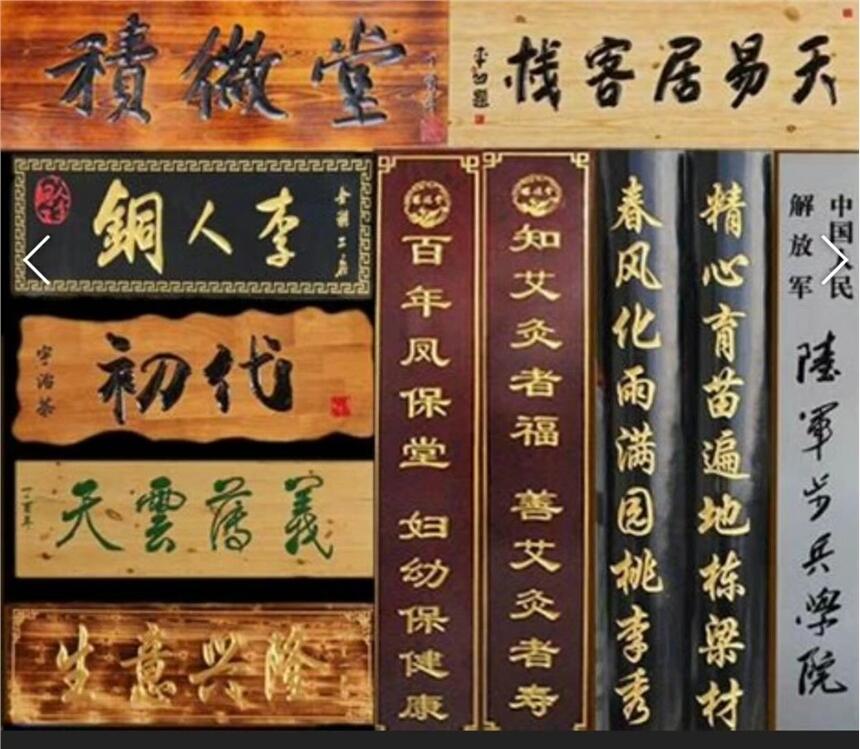 積微堂
天易居客栈
李人銅
初代
宇治茶
義薄雲天
生意兴隆
知艾灸者福 善艾灸者寿
百年凤保堂 妇幼保健康
精心育苗遍地栋梁材
春风化雨满园桃李秀
中国人民
解放军
陸軍步兵學院